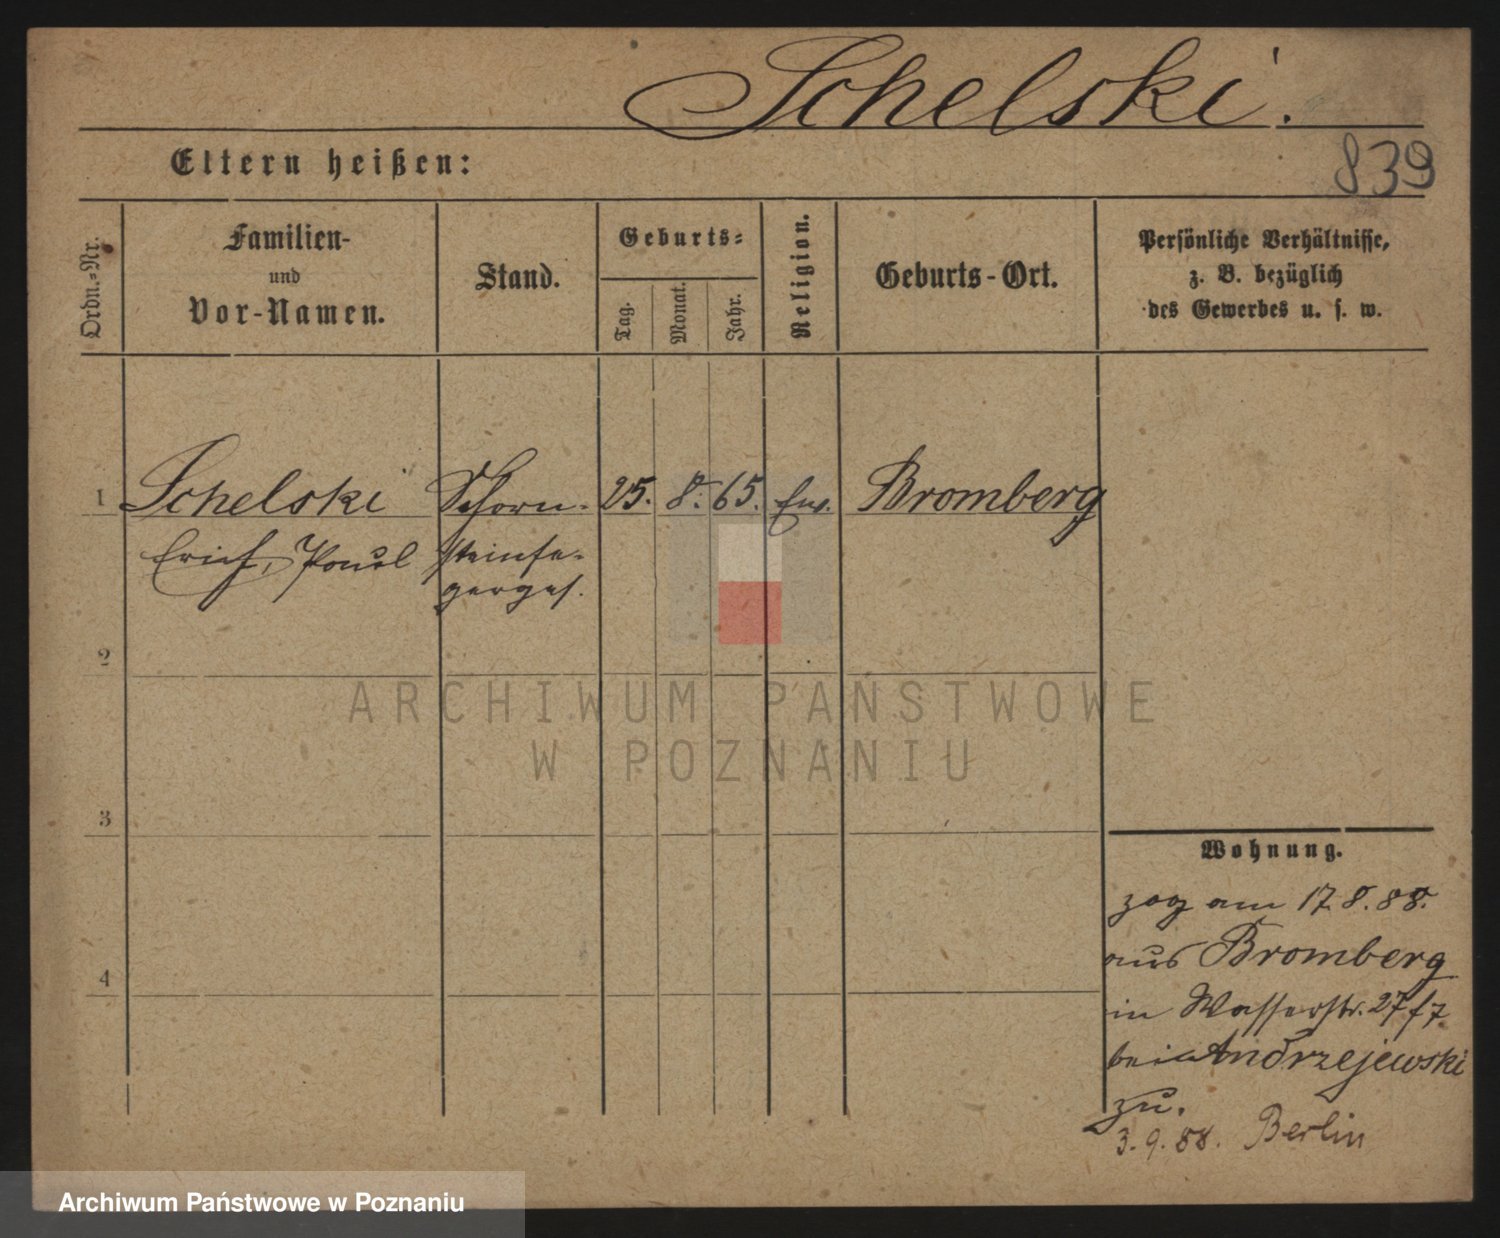 Schelski.
839
Eltern heißen:
Ordn.-Nr.
Familien-
und
Vor-Namen.
Stand.
Geburts-
Tag.
Monat.
Jahr.
Religion.
Geburts-Ort.
Persönliche Verhältnisse,
z. B. bezüglich
des Gewerbes u. s. w.
1 Schelski Schorn- 25. 8. 65. Ev. Bromberg
Erich, Paul steinfe-
gerges.
2
ARCHIWUM PAŃSTWOWE
W POZNANIU
3
Wohnung.
4
zog am 17.8.88.
aus Bromberg
in Wasserstr. 27/7
bei Andrzejewski
zu.
3.9.88. Berlin
Archiwum Państwowe w Poznaniu